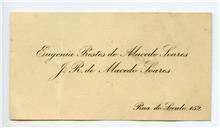 Eugenia Prestes de Macedo Soares
J. R. de Macedo Soares
Rua do Seculo, 152